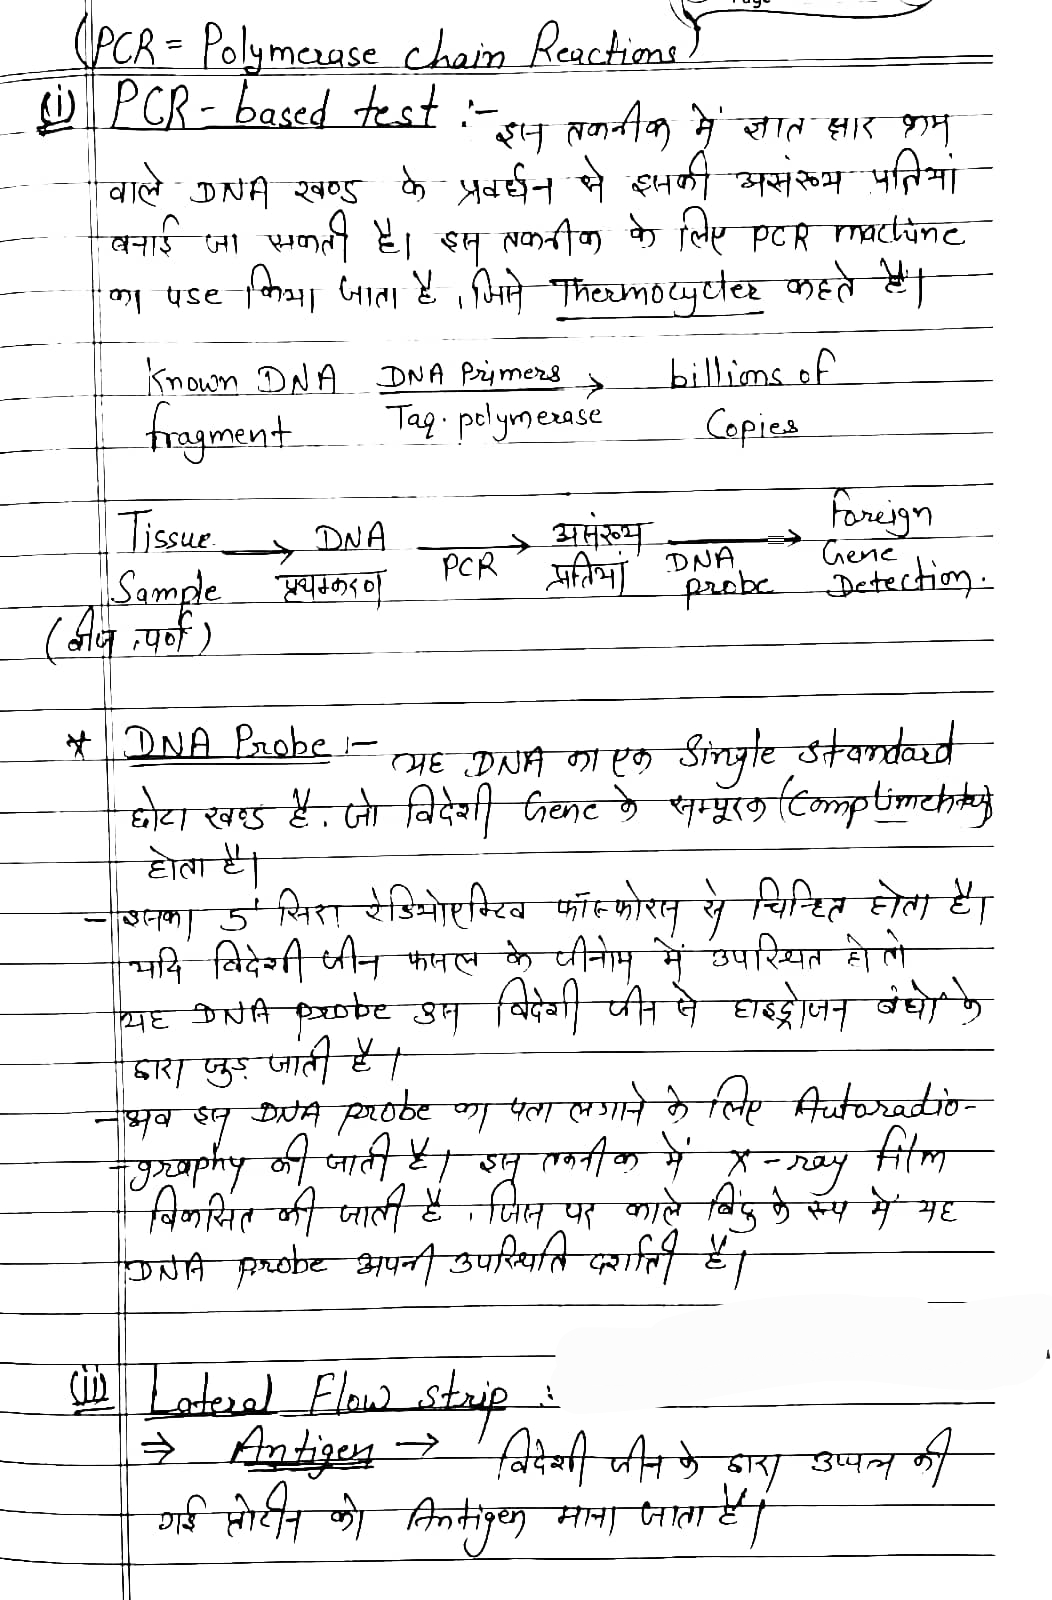 (PCR = Polymerase chain Reactions)
(i) PCR - based test :- इस तकनीक में ज्ञात क्षार क्रम
वाले DNA खण्ड के प्रवर्धन से इसकी असंख्य प्रतियां
बनाई जा सकती है। इस तकनीक के लिए PCR machine
का use किया जाता है, जिसे Thermocycler कहते हैं।
Known DNA DNA Primers → billions of
fragment Taq. polymerase Copies
Tissue → DNA → असंख्य → Foreign
Sample पृथक्करण PCR प्रतियां DNA probe Gene Detection.
(बीज, पर्ण)
* DNA Probe :- यह DNA का एक Single standard
छोटा खण्ड है. जो विदेशी Gene के सम्पूरक (Complimentry)
होता है।
- इसका 5' सिरा रेडियोएक्टिव फॉस्फोरस से चिन्हित होता है।
यदि विदेशी जीन फसल के जीनोम में उपस्थित हो तो
यह DNA probe उस विदेशी जीन से हाइड्रोजन बंधों के
द्वारा जुड़ जाती है।
- अब इस DNA probe का पता लगाने के लिए Autoradio-
-graphy की जाती है। इस तकनीक में X-ray film
विकसित की जाती है, जिस पर काले बिंदु के रूप में यह
DNA probe अपनी उपस्थिति दर्शाती है।
(ii) Lateral Flow strip :
⇒ Antigen → विदेशी जीन के द्वारा उत्पन्न की
गई प्रोटीन को Antigen माना जाता है।